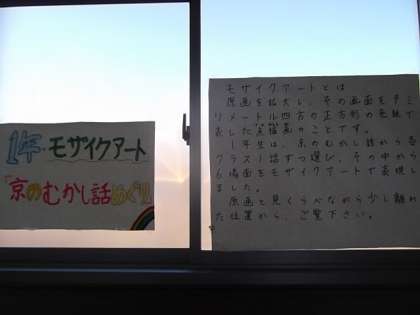 1年 モザイクアート
「京のむかし話めぐり」
モザイクアートとは
原画を拡大し、その画面を
リメートル四方の正方形の色紙で
表した点描画のことです。
1年生は、京のむかし話から各
クラス1話ずつ選び、その中から
6場面をモザイクアートで表現し
ました。
原画と見くらべながら少し離れ
た位置から、ご覧下さい。